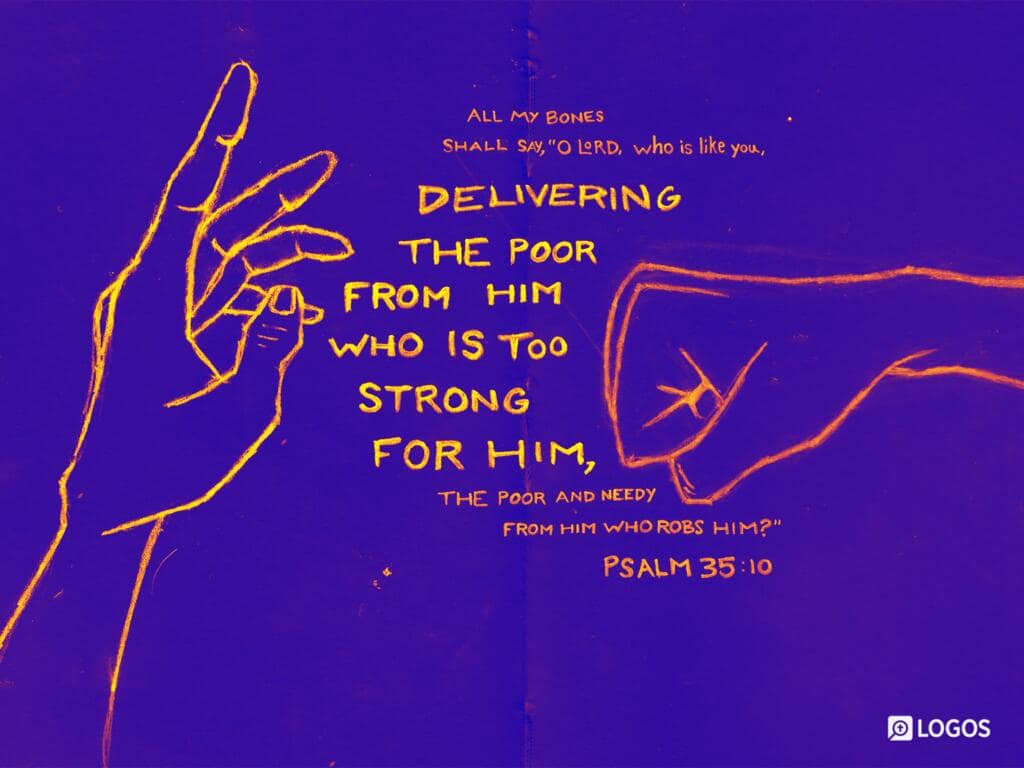 ALL MY BONES
SHALL SAY, "O LORD, who is like you,
DELIVERING
THE POOR
FROM HIM
WHO IS TOO
STRONG
FOR HIM,
THE POOR AND NEEDY
FROM HIM WHO ROBS HIM?"
PSALM 35:10
LOGOS